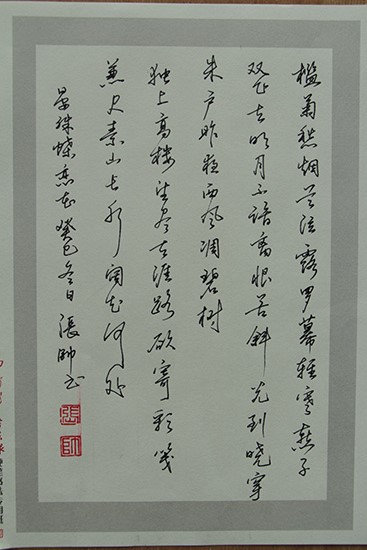 槛菊愁烟兰泣露罗幕轻寒燕子
双飞去明月不谙离恨苦斜光到晓穿
朱户昨夜西风凋碧树
独上高楼望尽天涯路欲寄彩笺
兼尺素山长水阔知何处
晏殊蝶恋花癸巳冬日張帥书
張帥